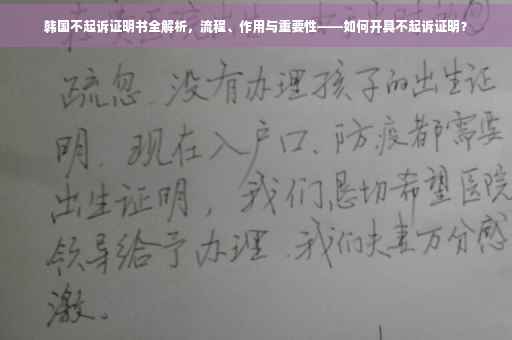 韩国不起诉证明书全解析，流程、作用与重要性——如何开具不起诉证明？
疏忽、没有办理孩子的出生证
明、现在入户口、防疫都需要
出生证明，我们恳切希望医院
领导给予办理、我们夫妻万分感
激。